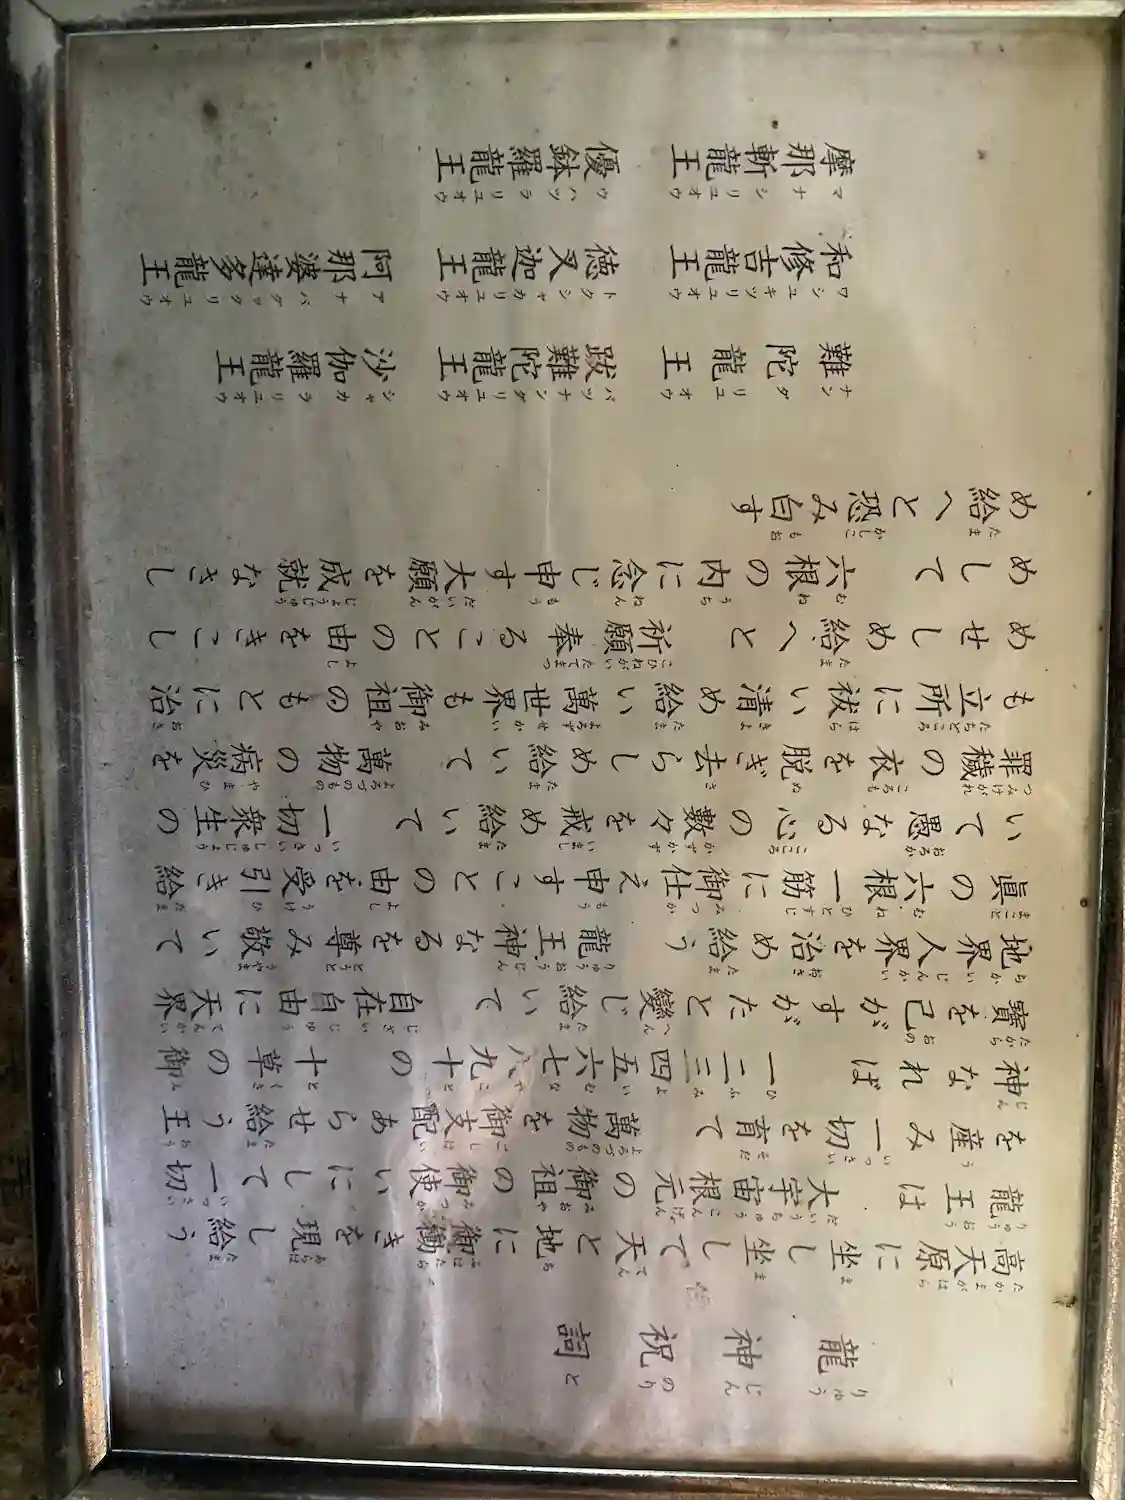 龍神祝詞
高天原に坐し坐して天と地に御働きを現し給う
龍王は 大宇宙根元の御祖の御使いにして一切
を産み一切を育て 萬物を御支配あらせ給う王
神なれば 一二三四五六七八九十の 十草の御
寶を己がすがたと變じ給いて 自在自由に天界
地界人界を治め給う 龍王神なるを尊み敬いて
眞の六根一筋に御仕え申すことの由を受引き給
いて 愚なる心の數々を戒め給いて 一切衆生の
罪穢の衣を脱ぎ去らしめ給いて 萬物の病災を
も立所に祓い清め給い 萬世界も御祖のもとに治
めせしめ給へと 祈願奉ることの由をきこし
めして 六根の内に念じ申す大願を成就なさし
め給へと恐み白す
難陀龍王 跋難陀龍王 沙伽羅龍王
和修吉龍王 徳叉迦龍王 阿那婆達多龍王
摩那斬龍王 優鉢羅龍王